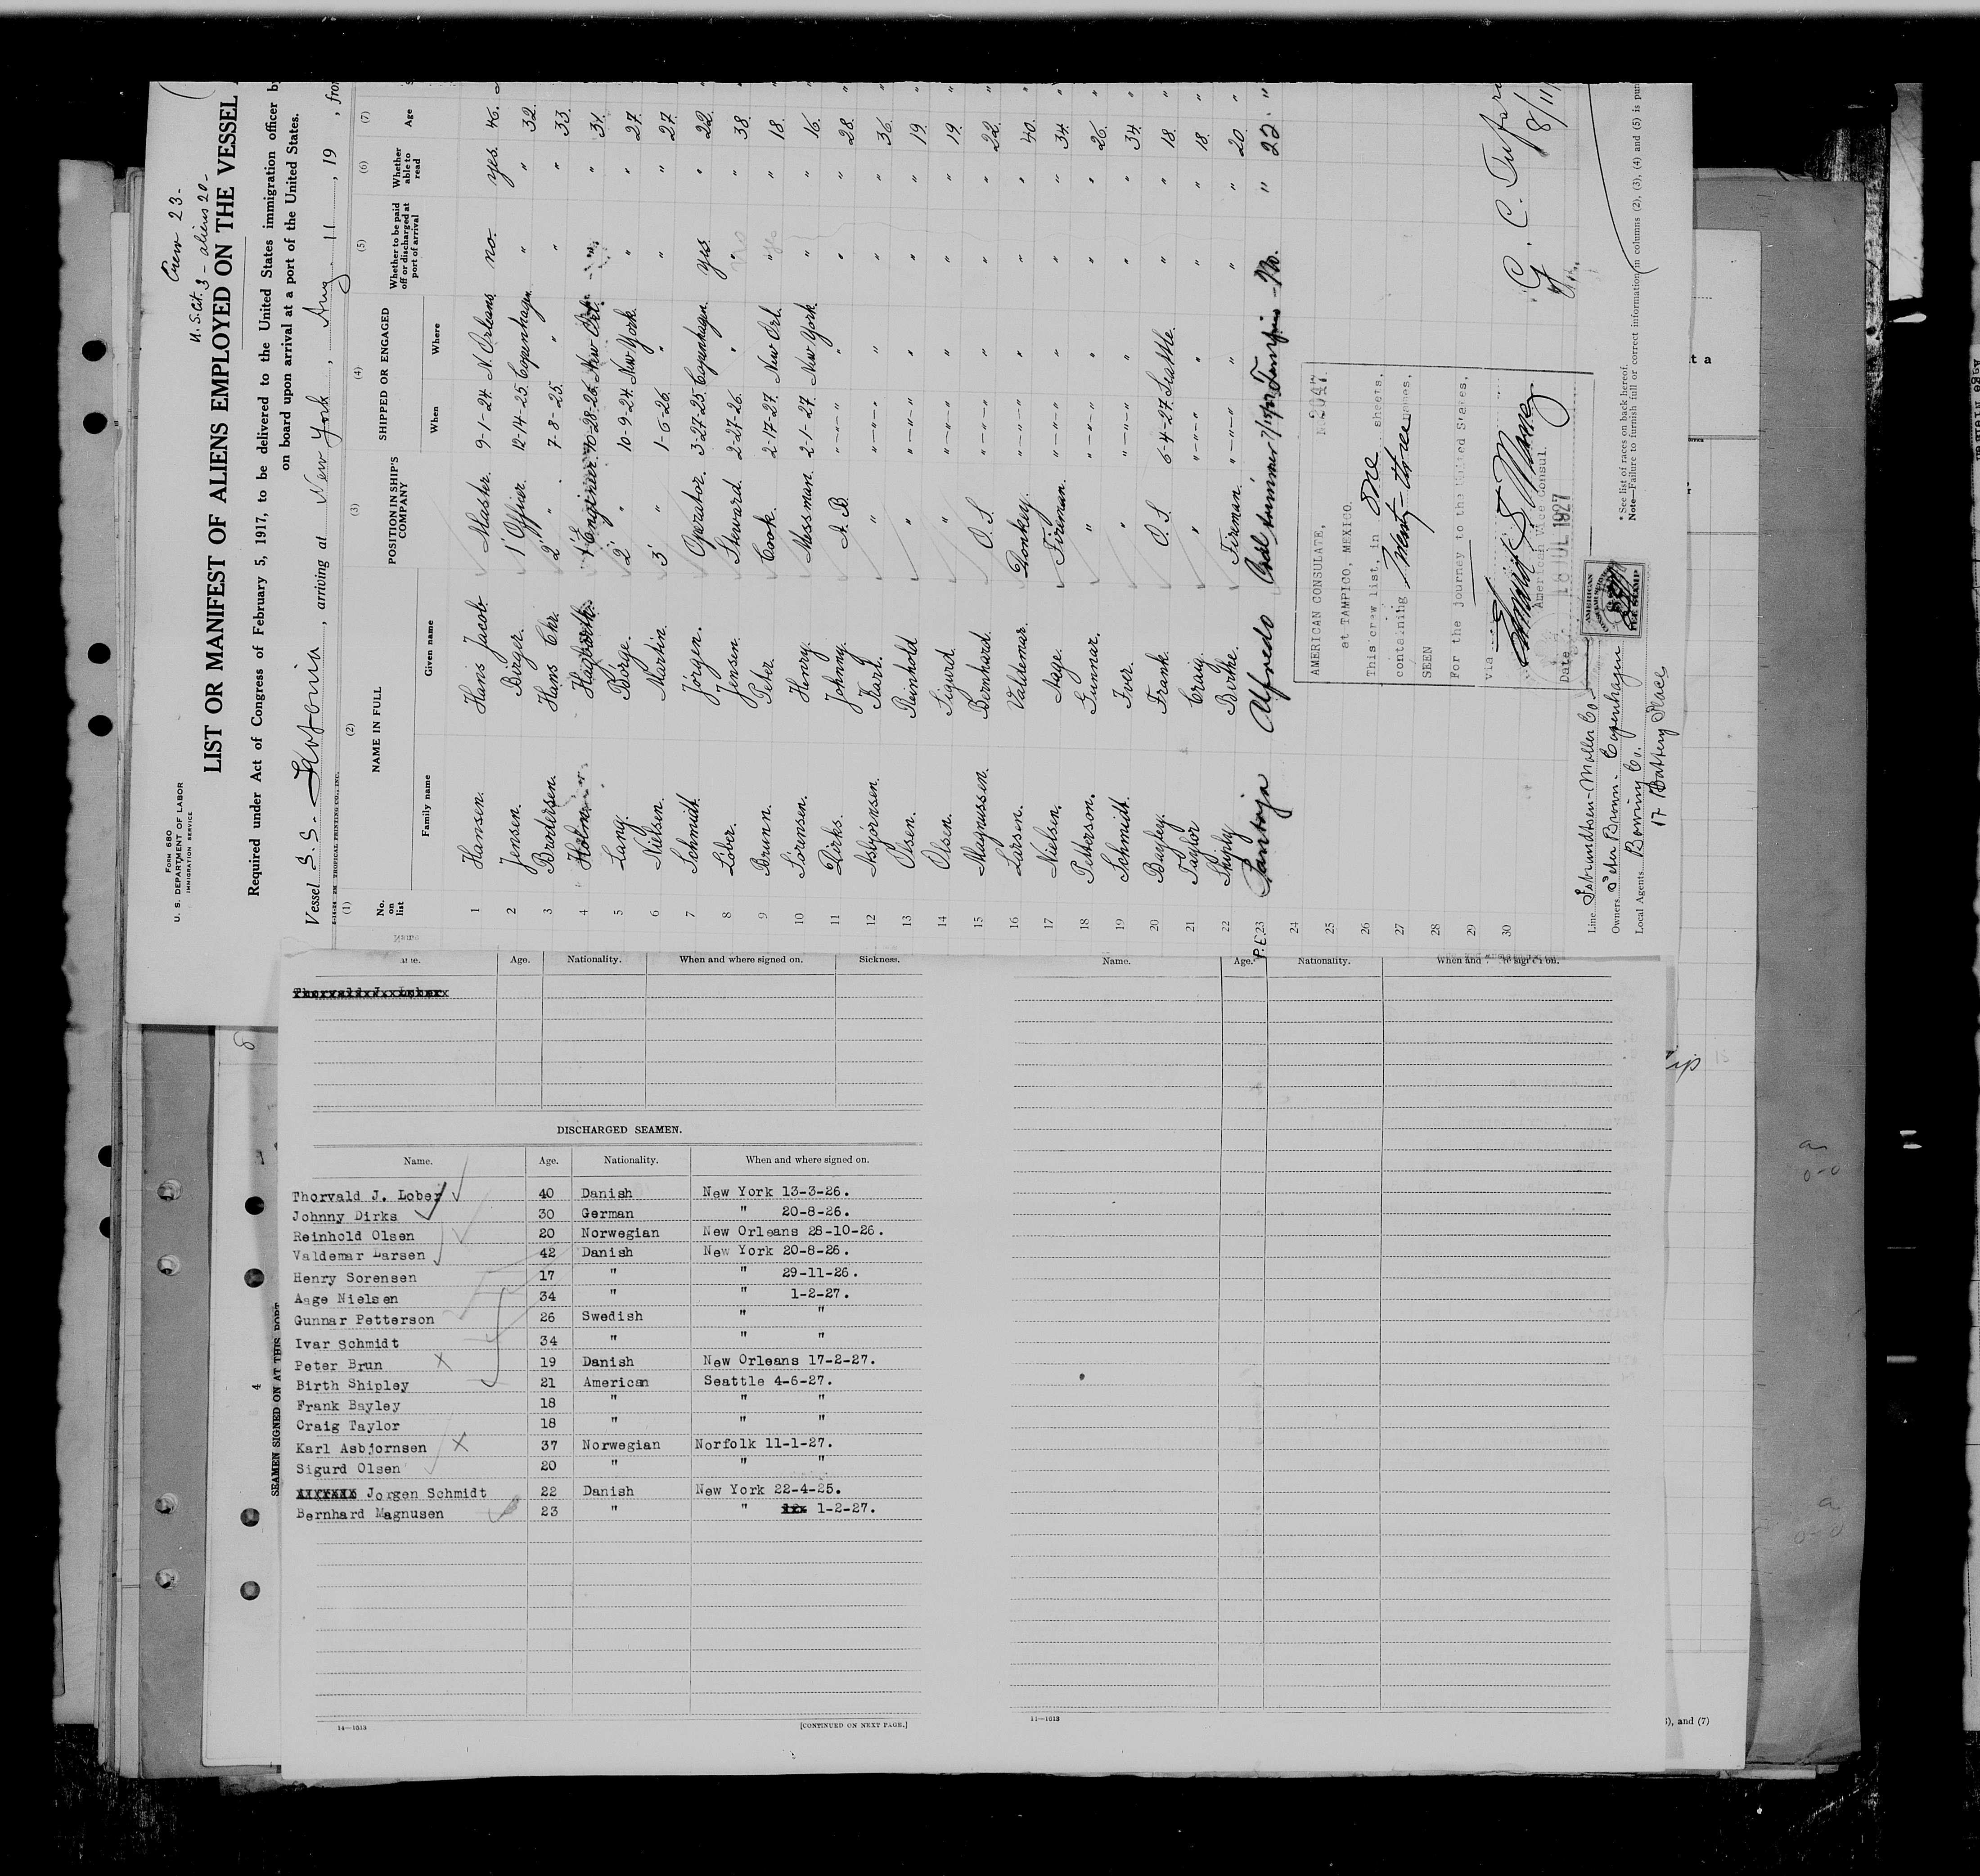 Crew 23.
U.S. Cit. 3 - aliens 20-
Form 680
U. S. DEPARTMENT OF LABOR
IMMIGRATION SERVICE
LIST OR MANIFEST OF ALIENS EMPLOYED ON THE VESSEL
Required under Act of Congress of February 5, 1917, to be delivered to the United States immigration officer b
on board upon arrival at a port of the United States.
Vessel S.S. , arriving at New York , Aug. 11 , 19 , fro
(1) (2) (3) (4) (5) (6) (7)
No. on list NAME IN FULL POSITION IN SHIP'S COMPANY SHIPPED OR ENGAGED Whether to be paid off or discharged at port of arrival Whether able to read Age
Family name Given name When Where
1 Hansen. Hans Jacob Master. 9-1-24. N.Orleans. no. yes. 46.
2 Jensen. Birger. 1' Officer. 12-14-25. Copenhagen. " " 32.
3 Brodersen. Hans Chr. 2' " 7-8-25. " " " 33.
4 Engineer. 10-28-26. New Orl. " 31.
5 Lang. Börge. 2' " 10-9-24. New York. " " 27.
6 Nielsen. Martin. 3' " 1-6-26. " " " 27.
7 Schmidt. Jörgen. Operator. 3-27-25. Copenhagen. yes. " 22.
8 Lober. Jensen. Steward. 2-27-26. " " " 38.
9 Brunn. Peter. Cook. 2-17-27. New Orl. " " 18.
10 Sörensen. Henry. Messman. 2-1-27. New York. " " 16.
11 Dirks. Johnny. A.B. "-"-" " " " 28.
12 Asbjörnsen. Karl. " "-"-" " " " 36.
13 Olsen. Reinhold " "-"-" " " " 19.
14 Olsen. Sigurd. " "-"-" " " " 19.
15 Magnussen. Bernhard. O.S. "-"-" " " " 22.
16 Larsen. Valdemar. Donkey. "-"-" " " " 40.
17 Nielsen. Aage. Fireman. "-"-" " " " 34.
18 Petterson. Gunnar. " "-"-" " " " 26.
19 Schmidt. Iver. " "-"-" " " " 34.
20 Bayley. Frank. O.S. 6-4-27. Seattle. " " 18.
21 Taylor Craig. " "-"-" " " " 18.
22 Shiply Birthe. Fireman. "-"-" " " " 20.
P.E. 23 Santoja Alfredo Coal trimmer Tampico - No. " 22. "
24
25
26
27
28
29
30
AMERICAN CONSULATE,
at TAMPICO, MEXICO. No. 2047
This crew list, in one sheets,
containing twenty-three names,
SEEN
For the journey to the United States.
via
American Vice Consul.
Date 18 JUL 1927
AMERICAN
FEE STAMP
8/11/
Line
Owners Peter Brown. Copenhagen
Local Agents Bowring Co.
17 Battery Place
* See list of races on back hereof.
Note—Failure to furnish full or correct information in columns (2), (3), (4) and (5) is pun
Age. Nationality. When and where signed on. Sickness.
Thorvald J. Lober
DISCHARGED SEAMEN.
Name. Age. Nationality. When and where signed on.
Thorvald J. Lober 40 Danish New York 13-3-26.
Johnny Dirks 30 German " 20-8-26.
Reinhold Olsen 20 Norwegian New Orleans 28-10-26.
Valdemar Larsen 42 Danish New York 20-8-26.
Henry Sorensen 17 " " 29-11-26.
Aage Nielsen 34 " " 1-2-27.
Gunnar Petterson 26 Swedish " "
Ivar Schmidt 34 " " "
Peter Brun 19 Danish New Orleans 17-2-27.
Birth Shipley 21 American Seattle 4-6-27.
Frank Bayley 18 " " "
Craig Taylor 18 " " "
Karl Asbjornsen 37 Norwegian Norfolk 11-1-27.
Sigurd Olsen 20 " " "
Jorgen Schmidt 22 Danish New York 22-4-25.
Bernhard Magnusen 23 " " 1-2-27.
14—1613 [CONTINUED ON NEXT PAGE.]
Name. Age. Nationality. When and where signed on.
11—1613
SEAMEN SIGNED ON AT THIS PORT
4
), and (7)